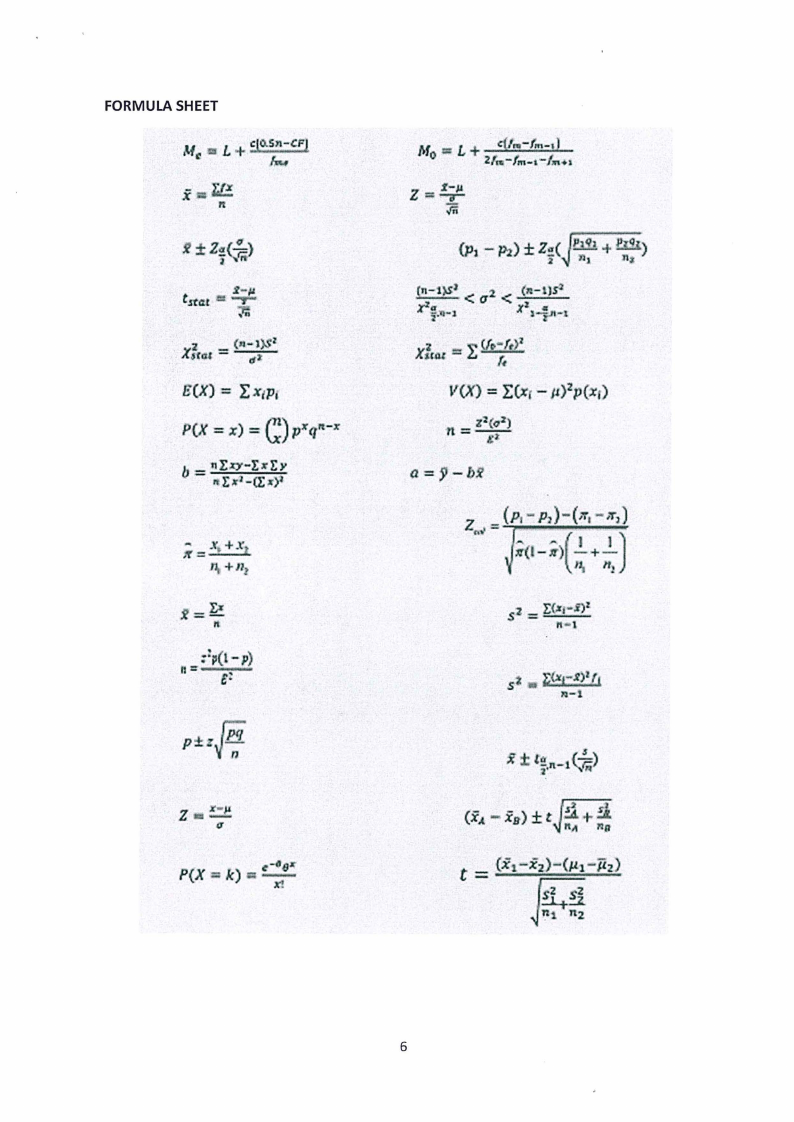 FORMULA SHEET
Mₑ = L + c[0.5n−CF] / fₘₑ    M₀ = L + c(fₘ−fₘ₋₁) / 2fₘ−fₘ₋₁−fₘ₊₁
x̄ = Σfx / n    Z = x̄−μ / (σ/√n)
x̄ ± Z_{α/2}(σ/√n)    (p₁ − p₂) ± Z_{α/2}(√(p₁q₁/n₁ + p₂q₂/n₂))
t_{stat} = x̄−μ / (s/√n)    (n−1)S² / χ²_{α/2,n−1} < σ² < (n−1)S² / χ²_{1−α/2,n−1}
χ²_{stat} = (n−1)S² / σ²    χ²_{stat} = Σ (f₀−fₑ)² / fₑ
E(X) = Σxᵢpᵢ    V(X) = Σ(xᵢ − μ)²p(xᵢ)
P(X = x) = (n x) pˣqⁿ⁻ˣ    n = Z²(σ²) / E²
b = nΣxy−ΣxΣy / nΣx²−(Σx)²    a = ȳ − bx̄
π̂ = x₁ + x₂ / n₁ + n₂    Z = (p₁ − p₂)−(π₁ − π₂) / √(π̂(1−π̂)(1/n₁ + 1/n₂))
x̄ = Σx / n    s² = Σ(xᵢ−x̄)² / n−1
n = z²p(1−p) / E²    s² = Σ(xᵢ−x̄)²fᵢ / n−1
p ± z√(pq/n)    x̄ ± t_{α/2,n−1}(s/√n)
Z = x−μ / σ    (x̄_A − x̄_B) ± t√(s²_A/n_A + s²_B/n_B)
P(X = k) = e^{−θ}θˣ / x!    t = (x̄₁−x̄₂)−(μ₁−μ̄₂) / √(s₁²/n₁ + s₂²/n₂)
6